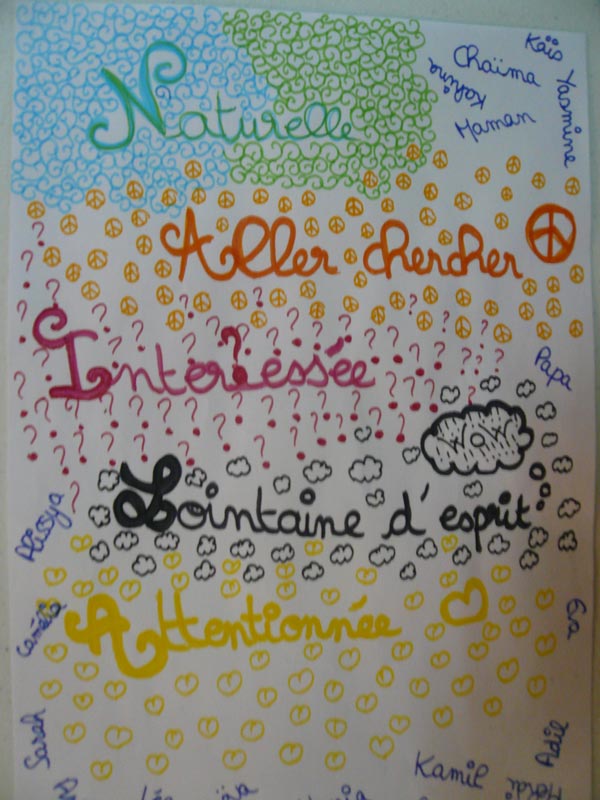 Kaïs
Yasmine
Chaïma
Kahina
Maman
Naturelle
Aller chercher
Intéressée
Papa
Lointaine d'esprit
Alissya
Attentionnée
Camélia
Eva
Sarah
Adil
Kamil